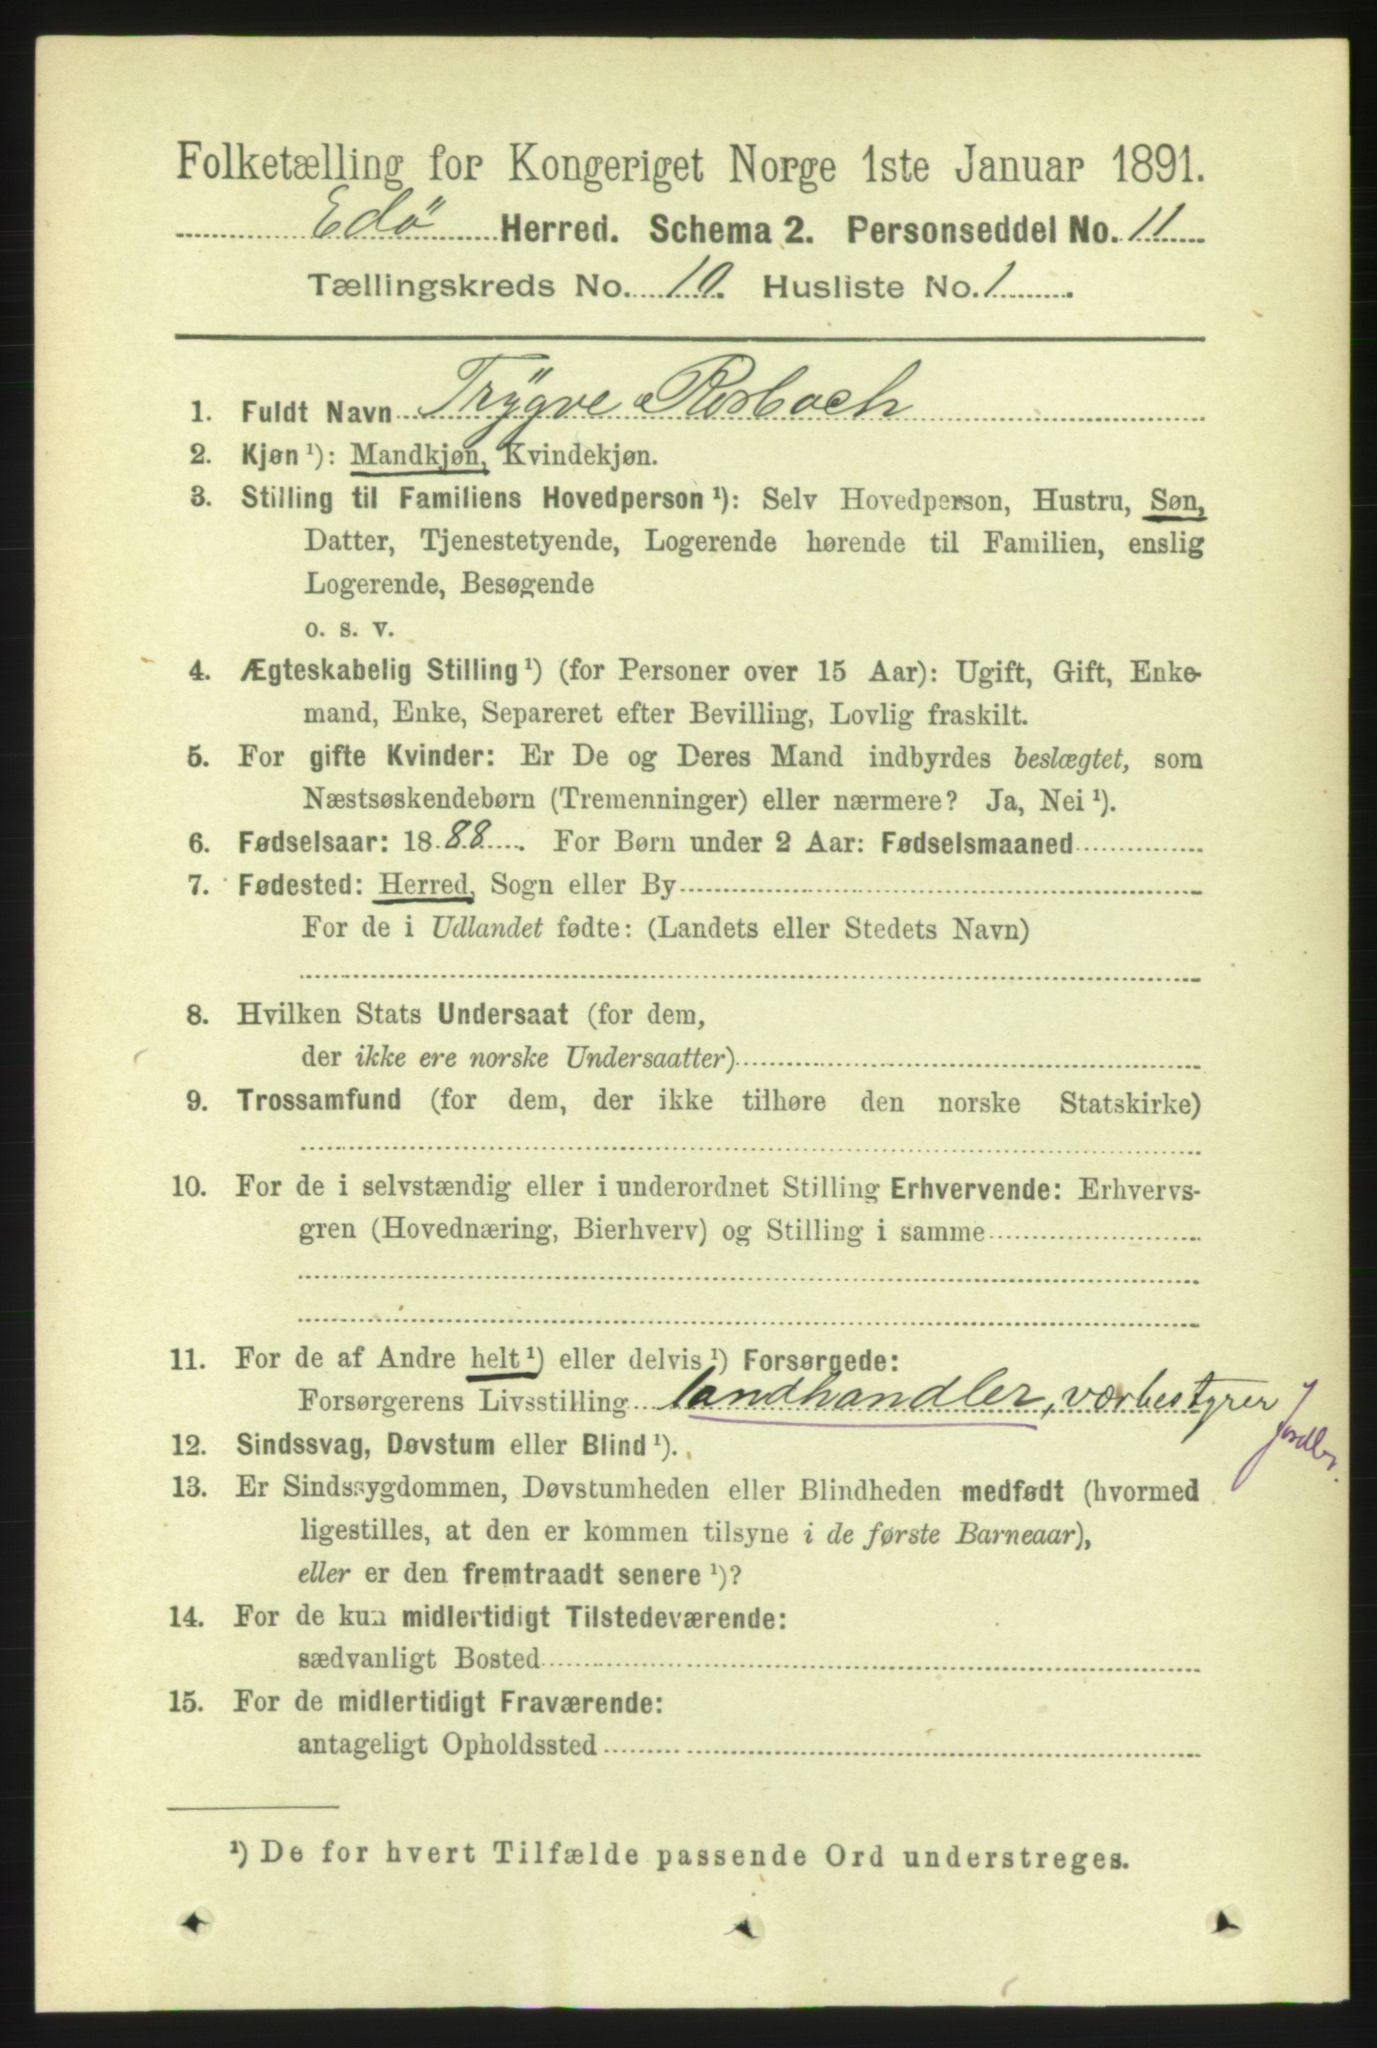 Folketælling for Kongeriget Norge 1ste Januar 1891.
Edö Herred. Schema 2. Personseddel No. 11
Tællingskreds No. 10. Husliste No. 1.
1. Fuldt Navn Trÿgve Rosbach
2. Kjøn ¹): Mandkjøn, Kvindekjøn.
3. Stilling til Familiens Hovedperson ¹): Selv Hovedperson, Hustru, Søn,
Datter, Tjenestetyende, Logerende hørende til Familien, enslig
Logerende, Besøgende
o. s. v.
4. Ægteskabelig Stilling ¹) (for Personer over 15 Aar): Ugift, Gift, Enke-
mand, Enke, Separeret efter Bevilling, Lovlig fraskilt.
5. For gifte Kvinder: Er De og Deres Mand indbyrdes beslægtet, som
Næstsøskendebørn (Tremenninger) eller nærmere? Ja, Nei ¹).
6. Fødselsaar: 1888. For Børn under 2 Aar: Fødselsmaaned
7. Fødested: Herred, Sogn eller By
For de i Udlandet fødte: (Landets eller Stedets Navn)
8. Hvilken Stats Undersaat (for dem,
der ikke ere norske Undersaatter)
9. Trossamfund (for dem, der ikke tilhøre den norske Statskirke)
10. For de i selvstændig eller i underordnet Stilling Erhvervende: Erhvervs-
gren (Hovednæring, Bierhverv) og Stilling i samme
11. For de af Andre helt ¹) eller delvis ¹) Forsørgede:
Forsørgerens Livsstilling landhandler, værbestyrer
Jordbr.
12. Sindssvag, Døvstum eller Blind ¹).
13. Er Sindssygdommen, Døvstumheden eller Blindheden medfødt (hvormed
ligestilles, at den er kommen tilsyne i de første Barneaar),
eller er den fremtraadt senere ¹)?
14. For de kun midlertidigt Tilstedeværende:
sædvanligt Bosted
15. For de midlertidigt Fraværende:
antageligt Opholdssted
¹) De for hvert Tilfælde passende Ord understreges.